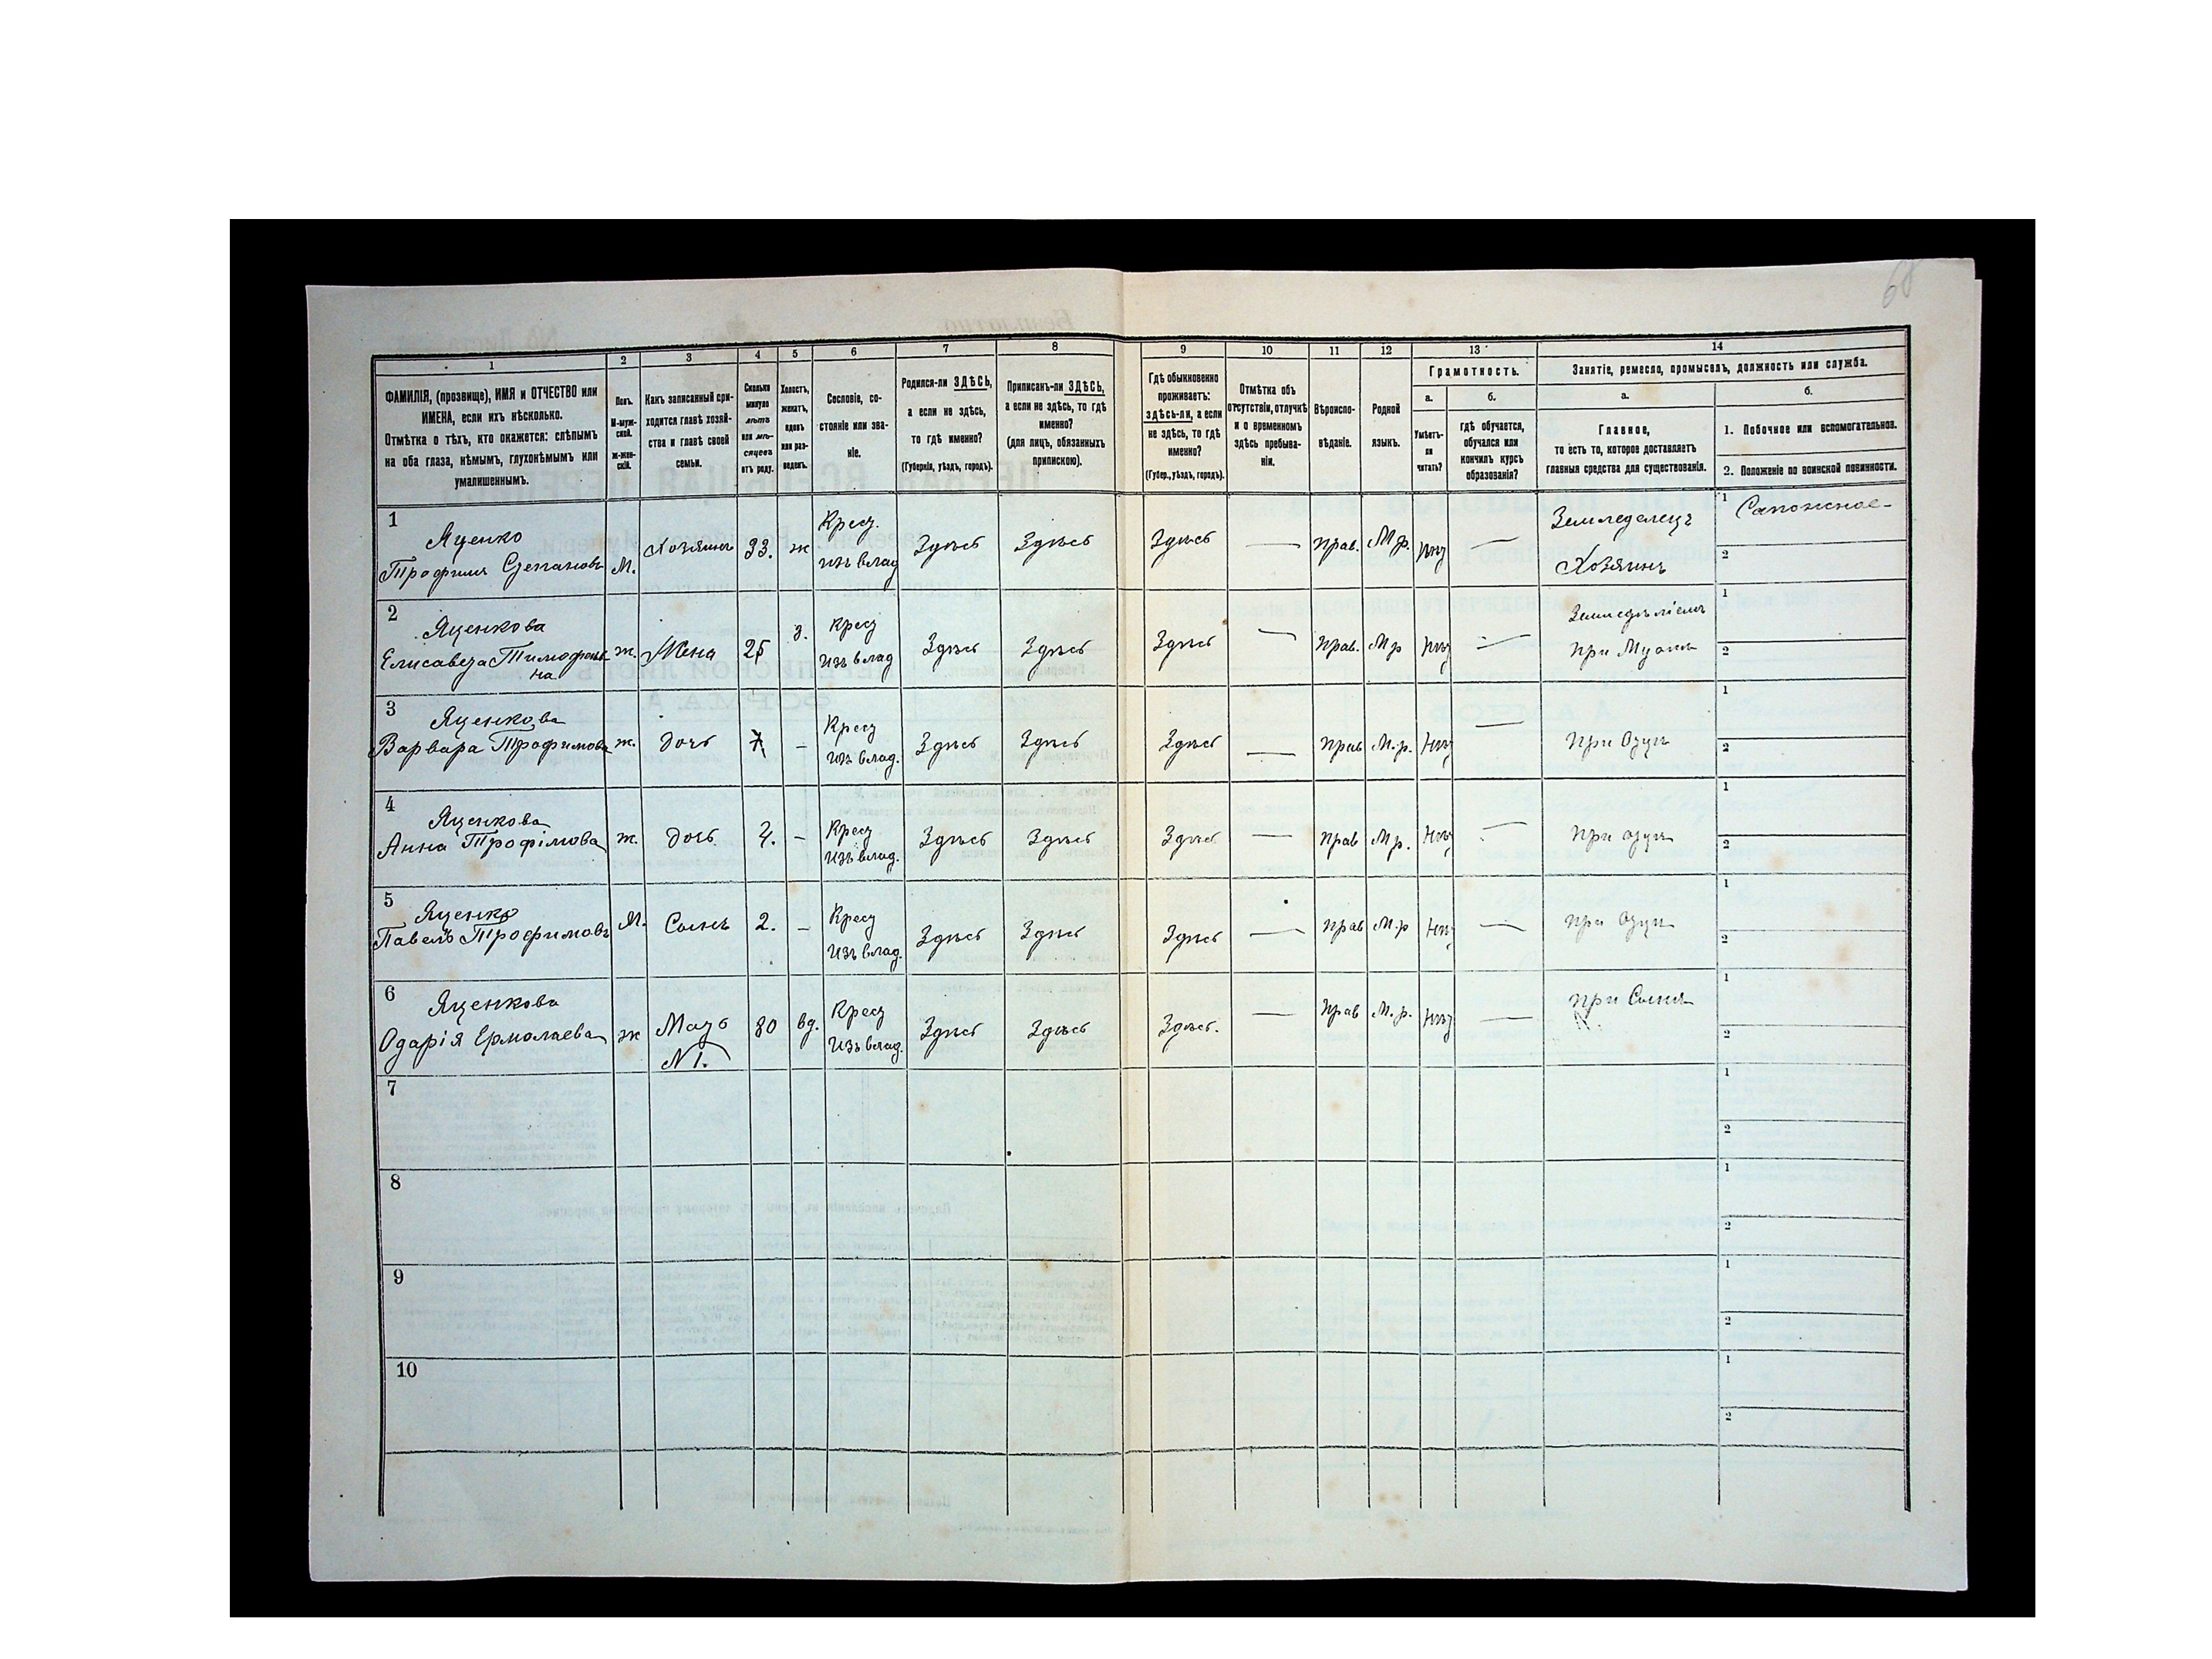 68
1
2
3
4
5
6
7
8
9
10
11
12
13
14
ФАМИЛІЯ, (прозвище), ИМЯ и ОТЧЕСТВО или
ИМЕНА, если ихъ нѣсколько.
Отмѣтка о тѣхъ, кто окажется: слѣпымъ
на оба глаза, нѣмымъ, глухонѣмымъ или
умалишеннымъ.
Полъ.
М-муж-
ской.
ж-жен-
скій.
Какъ записанный при-
ходится главѣ хозяй-
ства и главѣ своей
семьи.
Сколько
минуло
лѣтъ
или мѣ-
сяцевъ
отъ роду.
Холостъ,
женатъ,
вдовъ
или раз-
веденъ.
Сословіе, со-
стояніе или зва-
ніе.
Родился-ли ЗДѢСЬ,
а если не здѣсь,
то гдѣ именно?
(Губернія, уѣздъ, городъ).
Приписанъ-ли ЗДѢСЬ,
а если не здѣсь, то гдѣ
именно?
(для лицъ, обязанныхъ
припискою).
Гдѣ обыкновенно
проживаетъ:
здѣсь-ли, а если
не здѣсь, то гдѣ
именно?
(Губер., уѣздъ, городъ).
Отмѣтка объ
отсутствіи, отлучкѣ
и о временномъ
здѣсь пребыва-
ніи.
Вѣроиспо-
вѣданіе.
Родной
языкъ.
Грамотность.
а.
Умѣетъ-
ли
читать?
б.
гдѣ обучается,
обучался или
кончилъ курсъ
образованія?
Занятіе, ремесло, промыселъ, должность или служба.
а.
Главное,
то есть то, которое доставляетъ
главныя средства для существованія.
б.
1. Побочное или вспомогательное.
2. Положеніе по воинской повинности.
1
Яценко
Трофимъ Степановъ
М.
Хозяинъ
33.
ж
Крест.
изъ влад
Здѣсь
Здѣсь
Здѣсь
—
Прав.
М р.
нѣт
—
Земледелецъ
Хозяинъ
1 Сапожное-
2
2
Яценкова
Елисавета Тимофеев
на
ж.
Жена
25
з.
Крест
изъ влад
Здѣсь
Здѣсь
Здѣсь
—
Прав.
М р
нѣт
—
Земледѣліемъ
при Мужѣ
1
2
3
Яценкова
Варвара Трофимова
ж.
дочь
7
–
Крест
изъ влад.
Здѣсь
Здѣсь
Здѣсь
—
Прав
М.р.
Нѣт
—
При Отцѣ
1
2
4
Яценкова
Анна Трофімова
ж.
дочь.
4.
–
Крест
Изъ влад.
Здѣсь
Здѣсь
Здѣсь
—
Прав
М р.
Нѣт
—
При отцѣ
1
2
5
Яценко
Павелъ Трофимовъ
М.
Сынъ
2.
–
Крест
Изъ влад.
Здѣсь
Здѣсь
Здѣсь
—
Прав
М.р
Нѣт
—
При Отцѣ
1
2
6
Яценкова
Одарія Ермолаева
ж
Мать
N 1.
80
вд.
Крест
Изъ влад.
Здѣсь
Здѣсь
Здѣсь.
—
Прав
М.р.
Нѣт
—
При Сынѣ
1
2
7
1
2
8
1
2
9
1
2
10
1
2